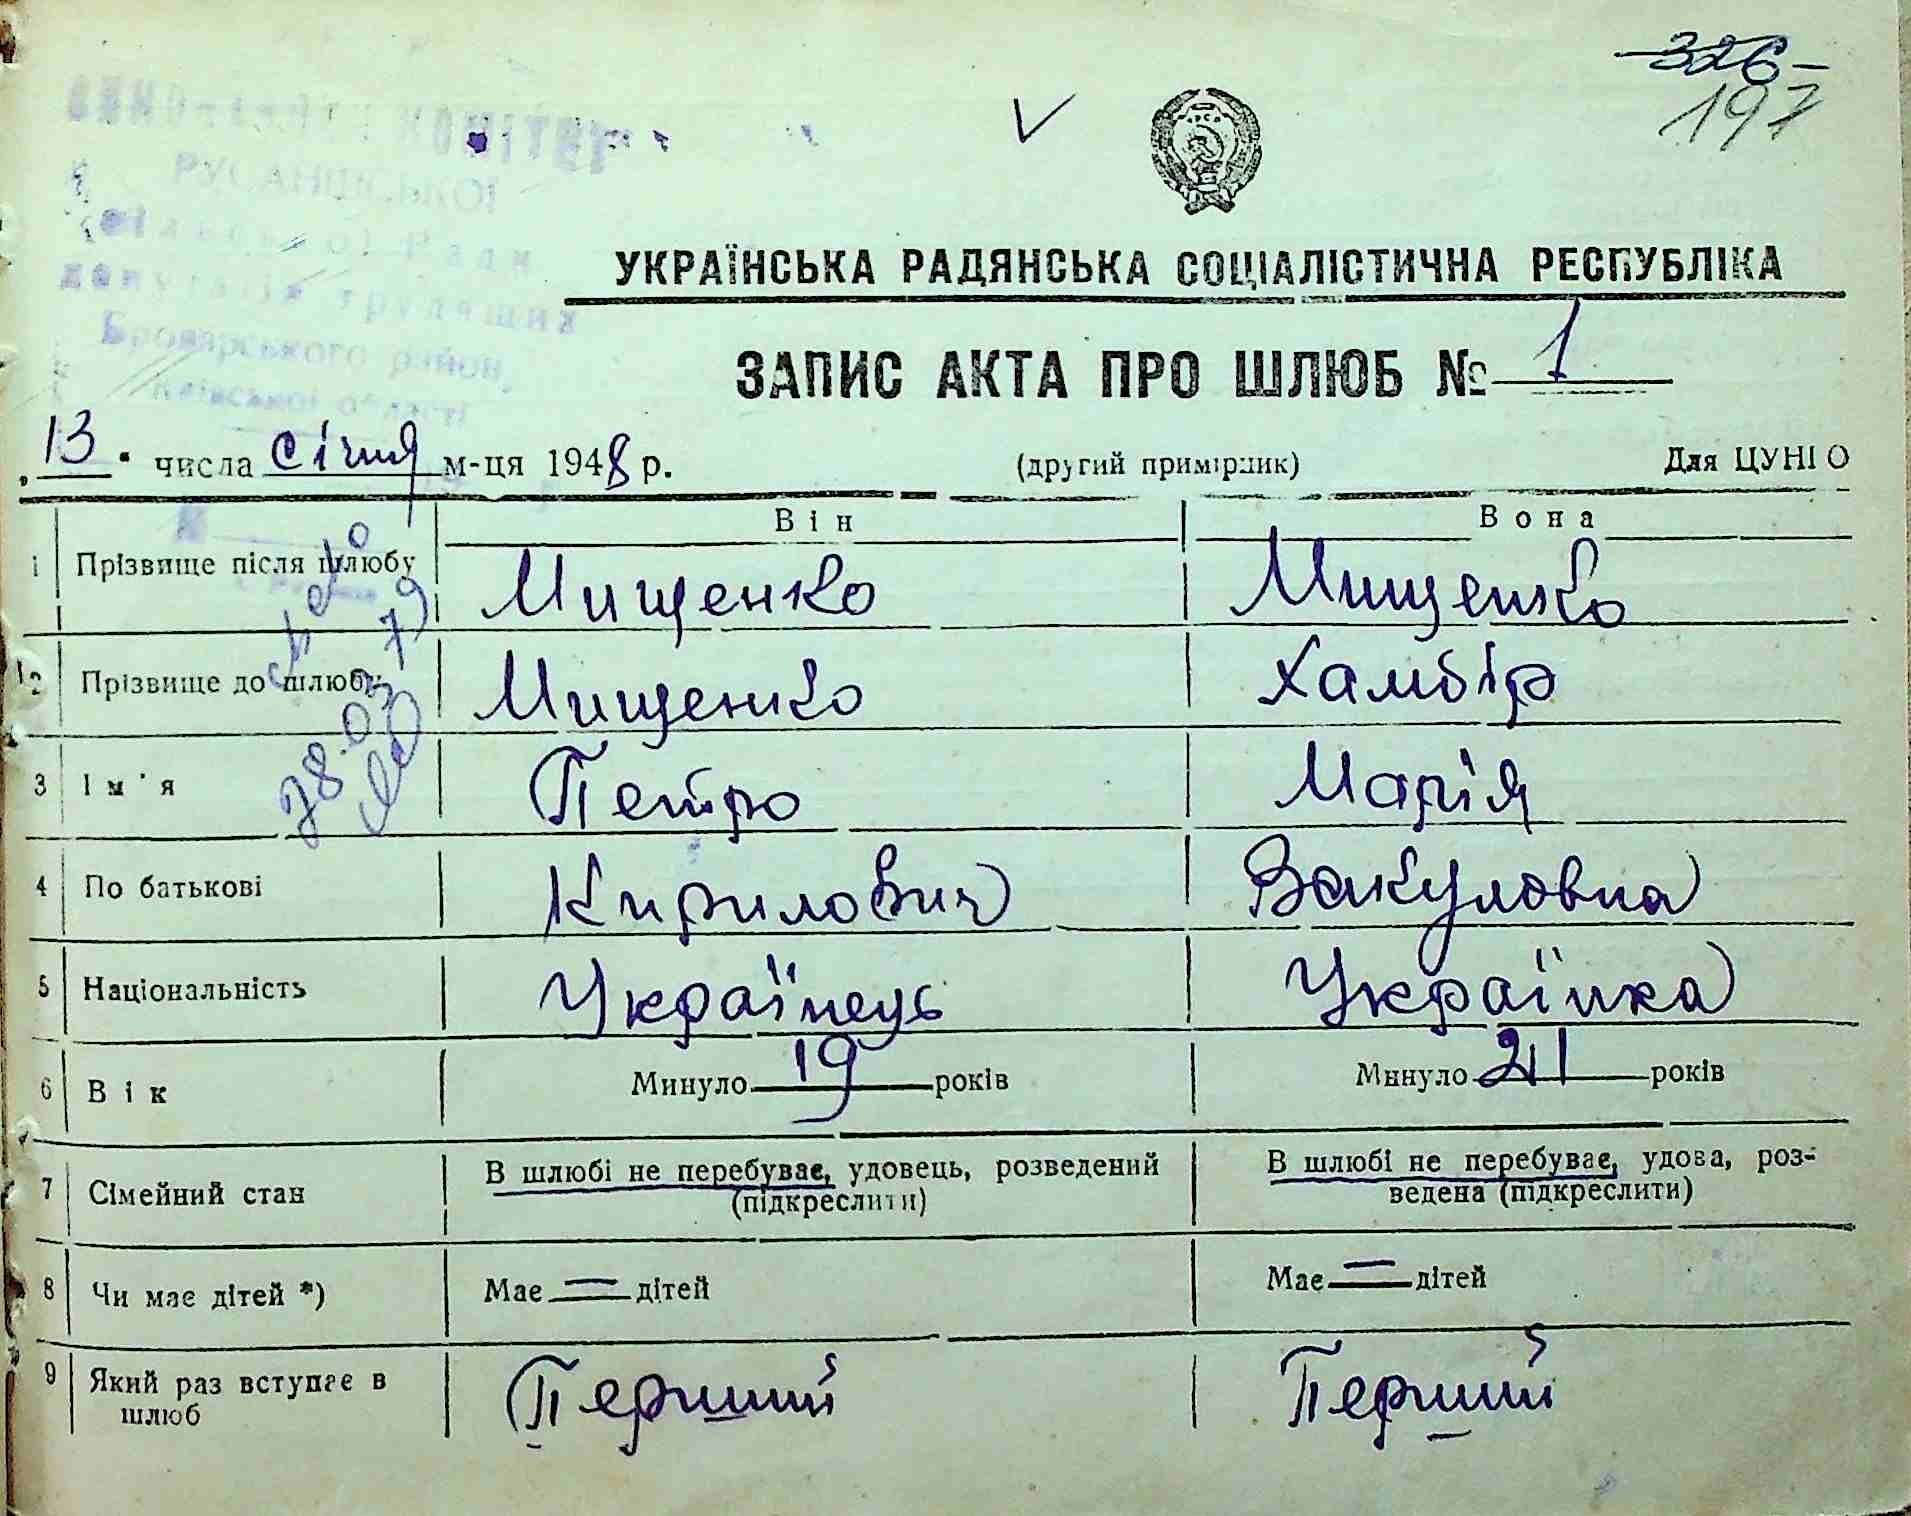 326
197
ВИКОНАВЧИЙ КОМІТЕТ
РУСАНІВСЬКОЇ
сільської Ради
депутатів трудящих
Броварського району,
Київської області
УКРАЇНСЬКА РАДЯНСЬКА СОЦІАЛІСТИЧНА РЕСПУБЛІКА
ЗАПИС АКТА ПРО ШЛЮБ № 1
„13" числа січня м-ця 1948 р. (другий примірник) Для ЦУНГО
Він Вона
1 Прізвище після шлюбу Мищенко Мищенко
2 Прізвище до шлюбу Мищенко Хамбір
3 Ім'я Петро Марія
4 По батькові Кирилович Вакуловна
5 Національність Українець Українка
6 Вік Минуло 19 років Минуло 21 років
7 Сімейний стан В шлюбі не перебуває, удовець, розведений В шлюбі не перебуває, удова, роз-
(підкреслити) ведена (підкреслити)
8 Чи має дітей *) Має = дітей Має = дітей
9 Який раз вступає в Перший Перший
шлюб